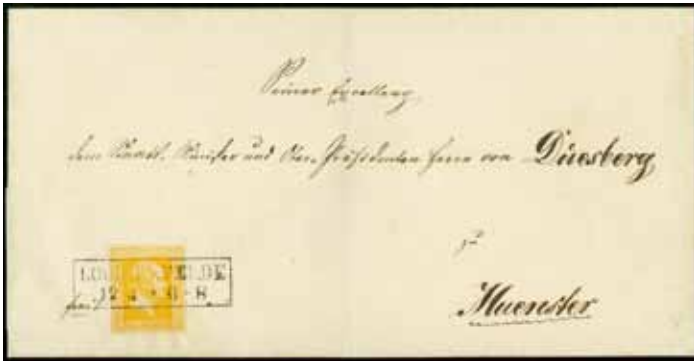 Seiner Excellenz
dem Staats-Minister und Ober-Präsidenten Herrn von Düesberg
zu
Muenster
12 6-8
frei